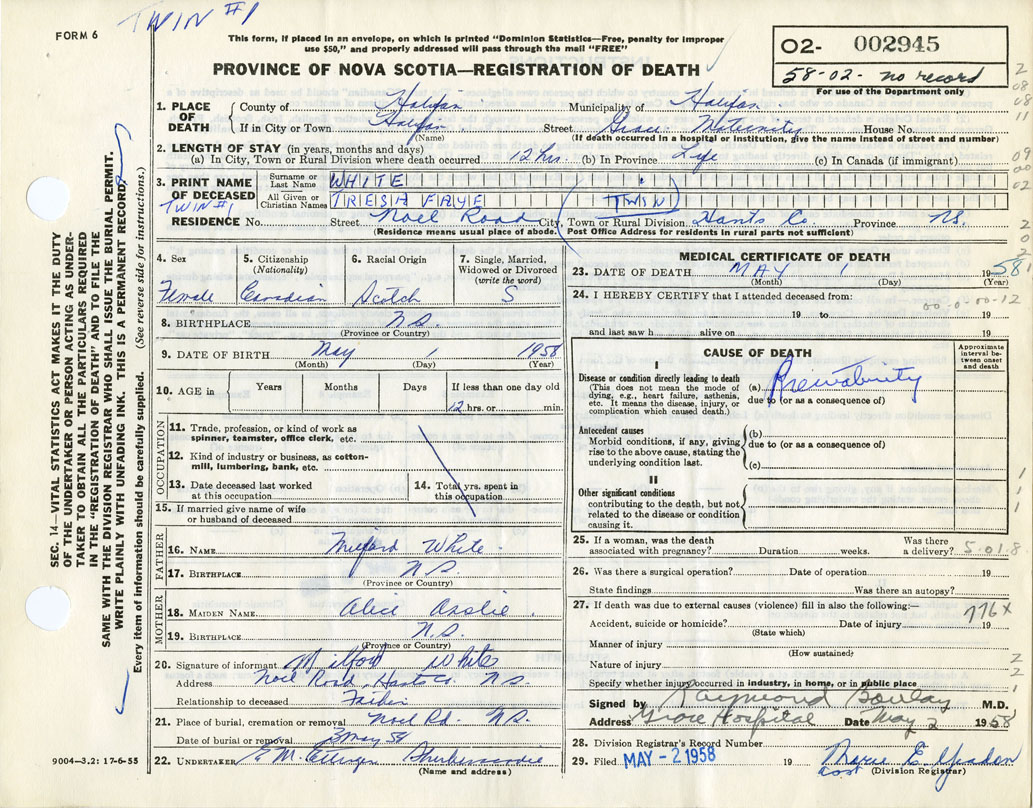 TWIN #1
FORM 6
This form, if placed in an envelope, on which is printed "Dominion Statistics—Free, penalty for improper
use $50," and properly addressed will pass through the mail "FREE"
PROVINCE OF NOVA SCOTIA—REGISTRATION OF DEATH
O2- 002945
58-02- no record
For use of the Department only
1. PLACE OF DEATH
County of Halifax Municipality of Halifax
If in City or Town Halifax Street Grace Maternity House No.
(Name) (If death occurred in a hospital or institution, give the name instead of street and number)
2. LENGTH OF STAY (in years, months and days)
(a) In City, Town or Rural Division where death occurred 12 hrs. (b) In Province Life (c) In Canada (if immigrant)
3. PRINT NAME OF DECEASED
TWIN #1
Surname or Last Name WHITE
All Given or Christian Names TRESA FAYE TWIN
RESIDENCE No. Street Noel Road City, Town or Rural Division Hants Co. Province N.S.
(Residence means usual place of abode. Post Office Address for residents in rural parts not sufficient)
4. Sex
Female
5. Citizenship
(Nationality)
Canadian
6. Racial Origin
Scotch
7. Single, Married,
Widowed or Divorced
(write the word)
S
8. BIRTHPLACE N.S.
(Province or Country)
9. DATE OF BIRTH May 1 1958
(Month) (Day) (Year)
10. AGE in
Years Months Days If less than one day old
12 hrs. or min.
OCCUPATION
11. Trade, profession, or kind of work as
spinner, teamster, office clerk, etc.
12. Kind of industry or business, as cotton-
mill, lumbering, bank, etc.
13. Date deceased last worked
at this occupation
14. Total yrs. spent in
this occupation
15. If married give name of wife
or husband of deceased
FATHER
16. NAME Milford White
17. BIRTHPLACE N.S.
(Province or Country)
MOTHER
18. MAIDEN NAME Alice
19. BIRTHPLACE N.S.
(Province or Country)
20. Signature of informant Milford White
Address Noel Road, Hants Co. N.S.
Relationship to deceased Father
21. Place of burial, cremation or removal Noel Rd. N.S.
Date of burial or removal 3 May 58
22. UNDERTAKER E.M. Ettinger
(Name and address)
MEDICAL CERTIFICATE OF DEATH
23. DATE OF DEATH MAY 1 1958
(Month) (Day) (Year)
24. I HEREBY CERTIFY that I attended deceased from:
00-0-00-12
19 to 19
and last saw h alive on 19
CAUSE OF DEATH
Approximate
interval be-
tween onset
and death
I
Disease or condition directly leading to death
(This does not mean the mode of
dying, e.g., heart failure, asthenia,
etc. It means the disease, injury, or
complication which caused death.)
(a) Prematurity
due to (or as a consequence of)
Antecedent causes
Morbid conditions, if any, giving
rise to the above cause, stating the
underlying condition last.
(b)
due to (or as a consequence of)
(c)
II
Other significant conditions
contributing to the death, but not
related to the disease or condition
causing it.
25. If a woman, was the death
associated with pregnancy? Duration weeks. Was there
a delivery? 5-01.8
26. Was there a surgical operation? Date of operation 19
State findings Was there an autopsy?
27. If death was due to external causes (violence) fill in also the following:—
776X
Accident, suicide or homicide? Date of injury 19
(State which)
Manner of injury
(How sustained)
Nature of injury
Specify whether injury occurred in industry, in home, or in public place
Signed by Raymond M.D.
Address Grace Hospital Date May 2 1958
28. Division Registrar's Record Number
29. Filed MAY - 2 1958 19 Marie E.
(Division Registrar)
SEC. 14—VITAL STATISTICS ACT MAKES IT THE DUTY
OF THE UNDERTAKER OR PERSON ACTING AS UNDER-
TAKER TO OBTAIN ALL THE PARTICULARS REQUIRED
IN THE "REGISTRATION OF DEATH" AND TO FILE THE
SAME WITH THE DIVISION REGISTRAR WHO SHALL ISSUE THE BURIAL PERMIT.
WRITE PLAINLY WITH UNFADING INK. THIS IS A PERMANENT RECORD.
Every item of information should be carefully supplied. (See reverse side for instructions.)
9004—3.2: 17-6-55
2
08
11
09
00
02
2
0
2
1
1
1
1
2
2
1